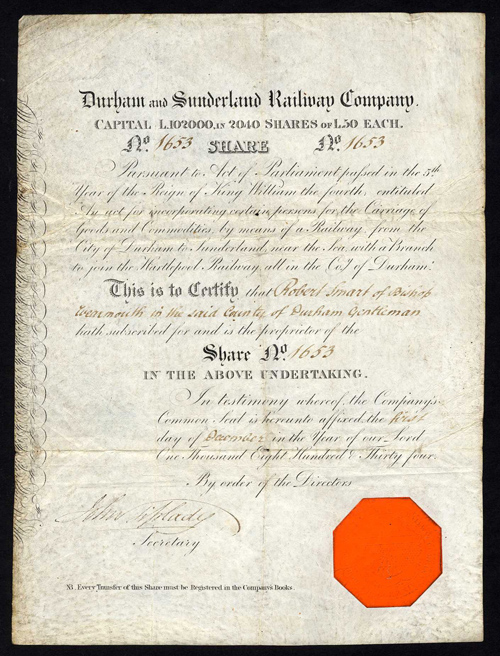 Durham and Sunderland Railway Company.
CAPITAL L.102000, IN 2040 SHARES OF L.50 EACH.
No. 1653 SHARE No. 1653
Pursuant to Act of Parliament passed in the 5th
Year of the Reign of King William the fourth, entituled
"An act for incorporating certain persons for the Carriage of
Goods and Commodities, by means of a Railway from the
City of Durham to Sunderland, near the Sea, with a Branch
to join the Hartlepool Railway, all in the Coy. of Durham."
This is to Certify that Robert Smart of Bishop
Wearmouth in the said County of Durham Gentleman
hath subscribed for and is the proprietor of the
Share No. 1653
IN THE ABOVE UNDERTAKING.
In testimony whereof, the Company's
Common Seal is hereunto affixed the first
day of December in the Year of our Lord
One Thousand Eight Hundred & Thirty four.
By order of the Directors
John
Secretary
NB. Every Transfer of this Share must be Registered in the Company's Books.